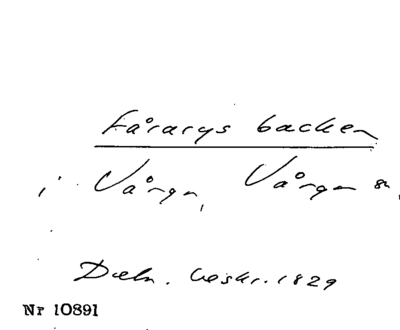 Fårarys backen
i Vårgn, Vårgn sn,
Dæln. beskr. 1829
Nr 10891